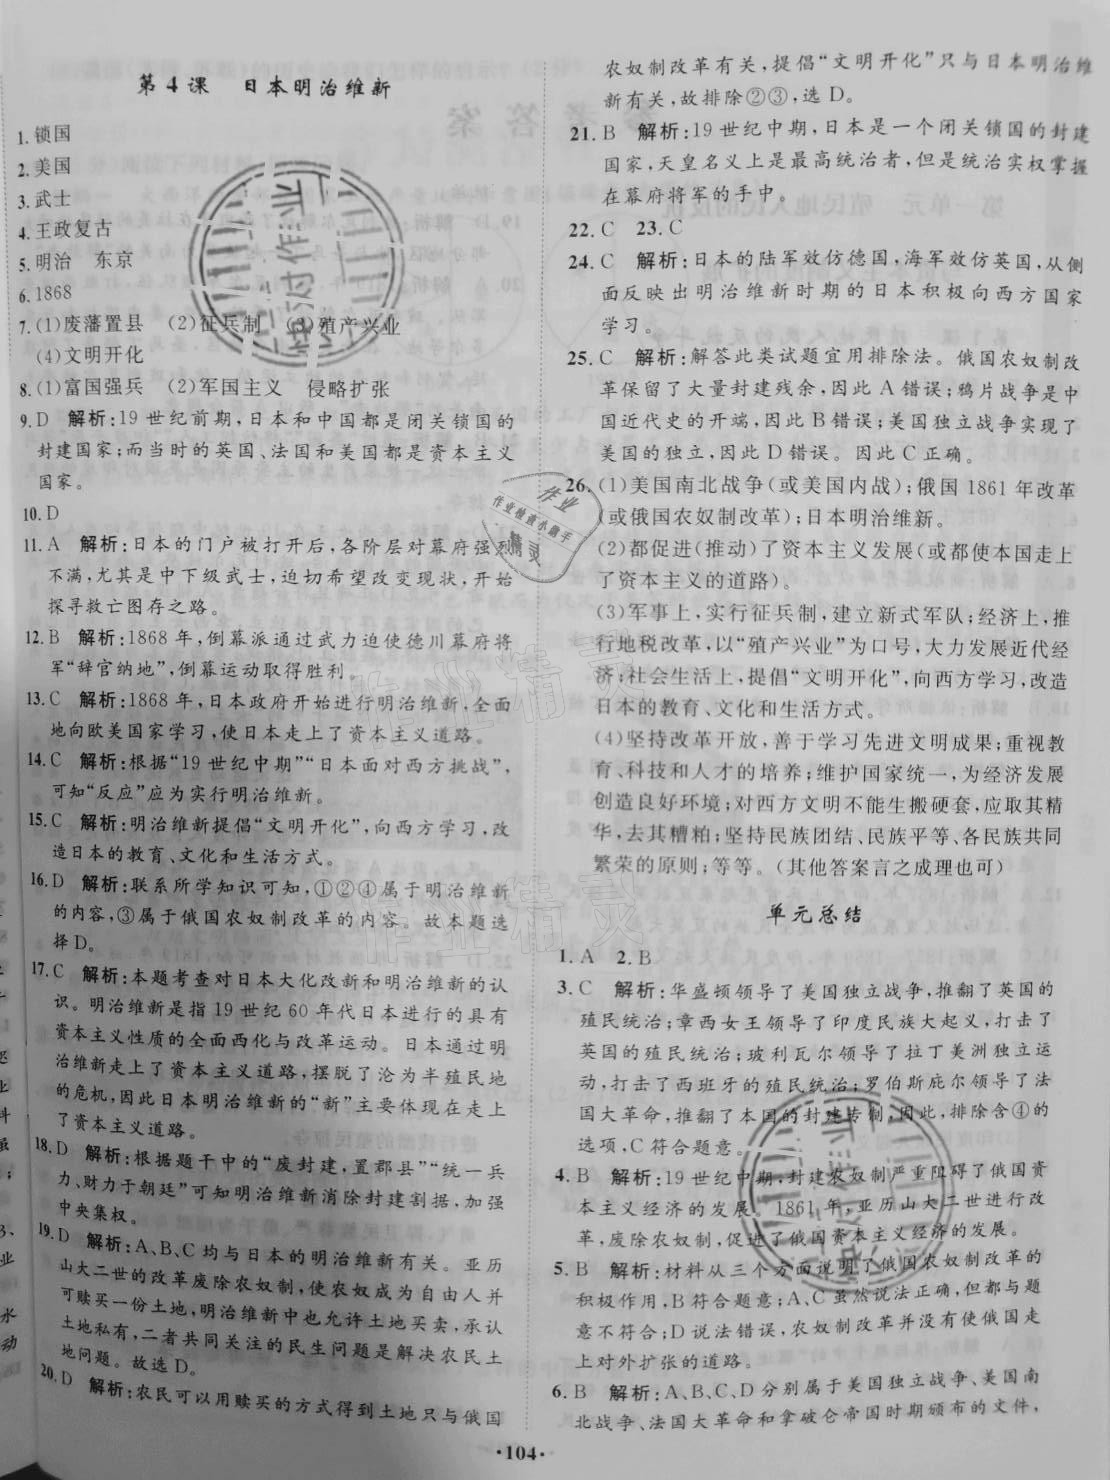 第4课　日本明治维新
1.锁国
2.美国
3.武士
4.王政复古
5.明治　东京
6.1868
7.(1)废藩置县　(2)征兵制　(3)殖产兴业
(4)文明开化
8.(1)富国强兵　(2)军国主义　侵略扩张
9.D　解析:19世纪前期,日本和中国都是闭关锁国的
封建国家;而当时的英国、法国和美国都是资本主义
国家。
10.D
11.A　解析:日本的门户被打开后,各阶层对幕府强烈
不满,尤其是中下级武士,迫切希望改变现状,开始
探寻救亡图存之路。
12.B　解析:1868年,倒幕派通过武力迫使德川幕府将
军“辞官纳地”,倒幕运动取得胜利。
13.C　解析:1868年,日本政府开始进行明治维新,全面
地向欧美国家学习,使日本走上了资本主义道路。
14.C　解析:根据“19世纪中期”“日本面对西方挑战”,
可知“反应”应为实行明治维新。
15.C　解析:明治维新提倡“文明开化”,向西方学习,改
造日本的教育、文化和生活方式。
16.D　解析:联系所学知识可知,①②④属于明治维新
的内容,③属于俄国农奴制改革的内容。故本题选
择D。
17.C　解析:本题考查对日本大化改新和明治维新的认
识。明治维新是指19世纪60年代日本进行的具有
资本主义性质的全面西化与改革运动。日本通过明
治维新走上了资本主义道路,摆脱了沦为半殖民地
的危机,因此日本明治维新的“新”主要体现在走上
了资本主义道路。
18.D　解析:根据题干中的“废封建,置郡县”“统一兵
力、财力于朝廷”可知明治维新消除封建割据,加强
中央集权。
19.D　解析:A、B、C均与日本的明治维新有关。亚历
山大二世的改革废除农奴制,使农奴成为自由人并
可赎买一份土地,明治维新中也允许土地买卖,承认
土地私有,二者共同关注的民生问题是解决农民土
地问题。故选D。
20.D　解析:农民可以用赎买的方式得到土地只与俄国
农奴制改革有关,提倡“文明开化”只与日本明治维
新有关,故排除②③,选D。
21.B　解析:19世纪中期,日本是一个闭关锁国的封建
国家,天皇名义上是最高统治者,但是统治实权掌握
在幕府将军的手中。
22.C　23.C
24.C　解析:日本的陆军效仿德国,海军效仿英国,从侧
面反映出明治维新时期的日本积极向西方国家
学习。
25.C　解析:解答此类试题宜用排除法。俄国农奴制改
革保留了大量封建残余,因此A错误;鸦片战争是中
国近代史的开端,因此B错误;美国独立战争实现了
美国的独立,因此D错误。因此C正确。
26.(1)美国南北战争(或美国内战);俄国1861年改革
(或俄国农奴制改革);日本明治维新。
(2)都促进(推动)了资本主义发展(或都使本国走上
了资本主义的道路)。
(3)军事上,实行征兵制,建立新式军队;经济上,推
行地税改革,以“殖产兴业”为口号,大力发展近代经
济;社会生活上,提倡“文明开化”,向西方学习,改造
日本的教育、文化和生活方式。
(4)坚持改革开放,善于学习先进文明成果;重视教
育、科技和人才的培养;维护国家统一,为经济发展
创造良好环境;对西方文明不能生搬硬套,应取其精
华,去其糟粕;坚持民族团结、民族平等、各民族共同
繁荣的原则;等等。(其他答案言之成理也可)
单元总结
1.A　2.B
3.C　解析:华盛顿领导了美国独立战争,推翻了英国的
殖民统治;章西女王领导了印度民族大起义,打击了
英国的殖民统治;玻利瓦尔领导了拉丁美洲独立运
动,打击了西班牙的殖民统治;罗伯斯庇尔领导了法
国大革命,推翻了本国的封建专制,因此,排除含④的
选项,C符合题意。
4.B　解析:19世纪中期,封建农奴制严重阻碍了俄国资
本主义经济的发展。1861年,亚历山大二世进行改
革,废除农奴制,促进了俄国资本主义经济的发展。
5.B　解析:材料从三个方面说明了俄国农奴制改革的
积极作用,B符合题意;A、C虽然说法正确,但都与题
意不符合;D说法错误,农奴制改革并没有使俄国走
上对外扩张的道路。
6.B　解析:A、C、D分别属于美国独立战争、美国南
北战争、法国大革命和拿破仑帝国时期颁布的文件,
·104·
作业
作业检查小助手
精灵
作业精灵
作业精灵